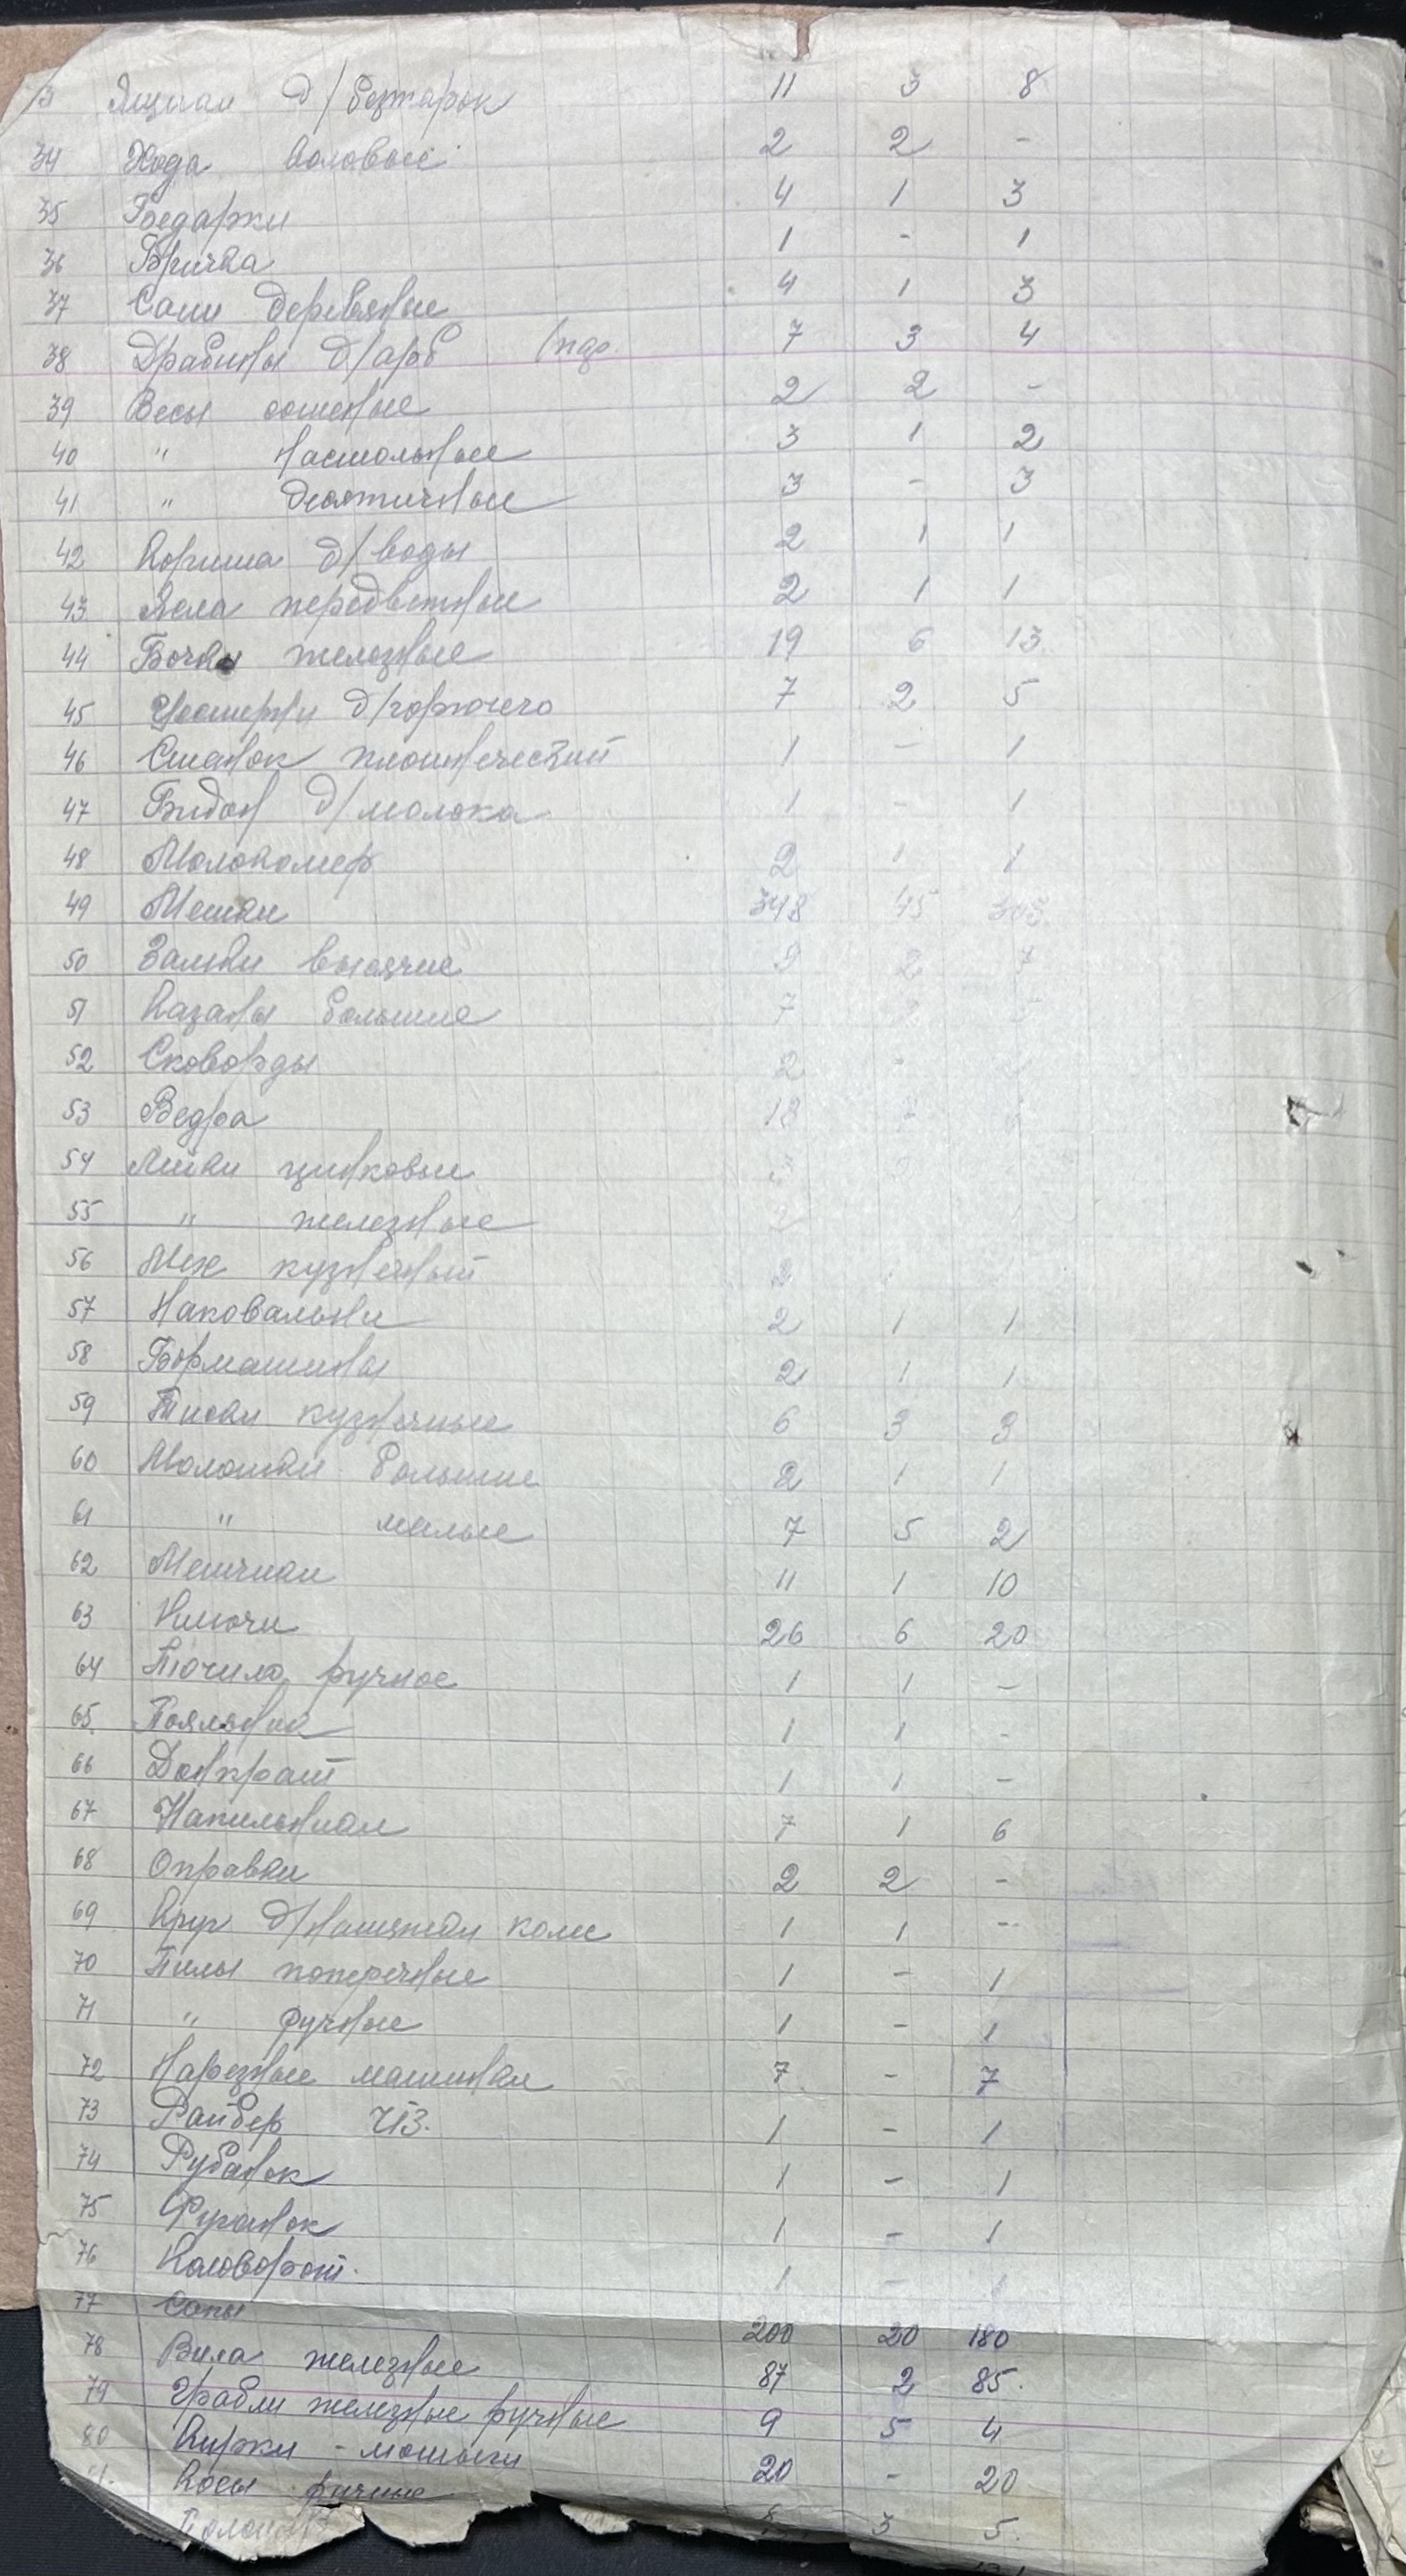 Ящики д/безтарок 11 3 8
34 Хода воловые 2 2 -
35 Бедаржи 4 1 3
36 Бричка 1 - 1
37 Сани деревяные 4 1 3
38 Драбины д/арб /пар. 7 3 4
39 Весы сотеные 2 2 -
40 " настольные 3 1 2
41 " десятичные 3 - 3
42 Корыта д/воды 2 1 1
43 Ясла передвежные 2 1 1
44 Бочки железные 19 6 13
45 Цыстерни д/горючего 7 2 5
46 Станок плотнеческий 1 - 1
47 Бидон д/молока 1 - 1
48 Молокомер 2 1 1
49 Мешки 348 45 303
50 Замки высячие 9 2 7
51 Казаны большие 7
52 Сковорды 2 -
53 Ведра 18
54 Лейки цинковые
55 " железные 2
56 Мех кузнечный 2
57 Наковальни 2 1 1
58 Бормашины 2 1 1
59 Тиски кузнечные 6 3 3
60 Молотки большие 2 1 1
61 " малые 7 5 2
62 Метчики 11 1 10
63 Ключи 26 6 20
64 Точило ручное 1 1 -
65 Пояльник 1 1 -
66 Домкрат 1 1 -
67 Напильники 7 1 6
68 Оправки 2 2 -
69 Круг д/натяжки колес 1 1 -
70 Пилы поперечные 1 - 1
71 " ручные 1 - 1
72 Нарезные машинки 7 - 7
73 Райбер 1 - 1
74 Рубанок 1 - 1
75 Фуганок 1 - 1
76 Коловорот. 1 - 1
77 Сапы 200 20 180
78 Вила железные 87 2 85.
79 Грабли железные ручные 9 5 4
80 Кирки - мотыги 20 - 20
Косы ручные 3 5.